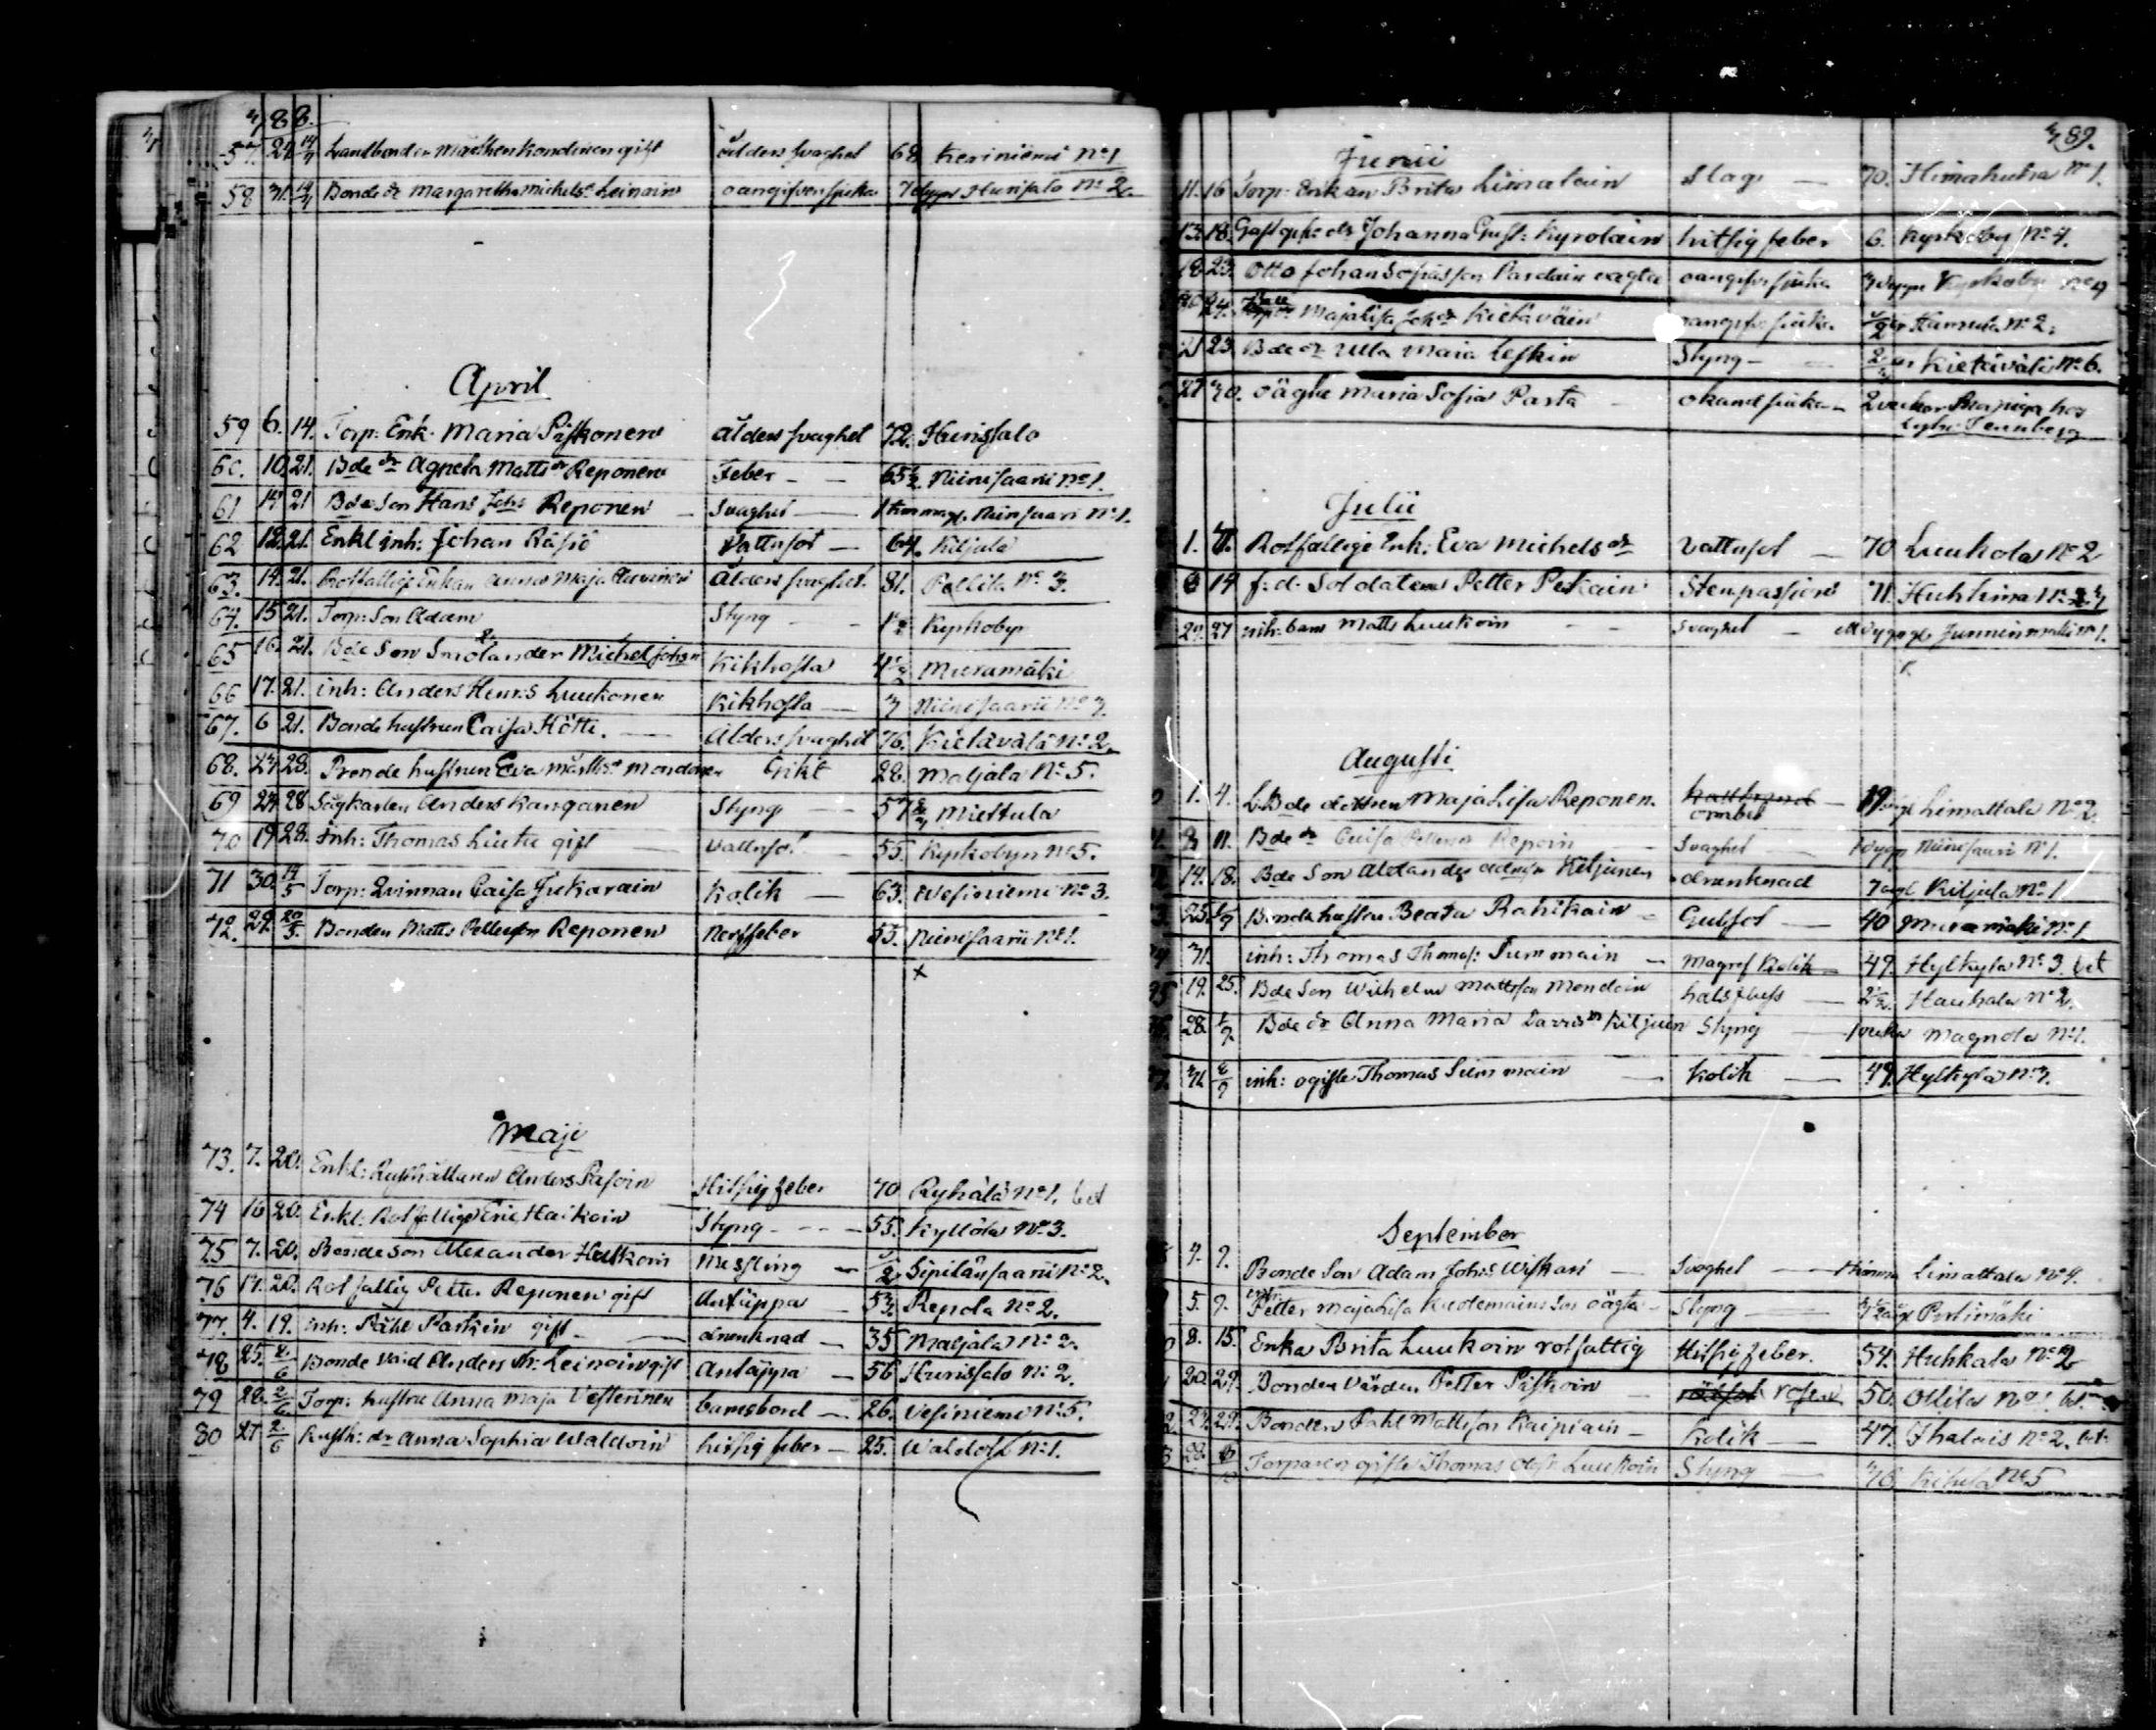 388.
57. 29 14/4 Landbonden Mårthen Kondinen gift ålders svaghet 68 Keriniemi No 1
58 31. 14/4 Bonde dr Margaretha Michelsdr Leinoin oangifven sjuka 7 dygn Hurissalo No 2.
April
59 6. 14. Torp: Enk. Maria Piskonen ålders svaghet 72. Hurissalo
60. 10. 21. Bde dr Agneta Mattsdr Reponen Feber 65½. Niinisaari No 1.
61 14 21 Bde Son Hans Johs Reponen Svaghet 1 tim. Niinisaari No 1.
62 12. 21. Enkl inh: Johan Räsiö Vattusot 64. Kiljula
63. 14. 21. Rotfallige Enkan Anna Maja ålders svaghet. 81. Pellila No 3.
64. 15 21. Torp: Son Adam Styng 1½ Kyrkobyn
65 16. 21. Bde Son Smolander Michel Johsn Kikhosta 4½ Muramäki
66 17. 21. inh: Anders Henrs Luukonen Kikhosta 3 Niinisaari No 3.
67. 6 21. Bonde hustrun Caisa Hötti. Ålders svaghet 76. Kietävälä No 2.
68. 23 28. Bonde hustrun Eva Mårthsdr Mondonen Gikt 28. Maljala No 5.
69 24 28 Sågkarlen Anders Kanganen Styng 57 Miettula
70 19 28. Inh: Thomas Liuta gift Vattusot 55. Kyrkobyn No 5.
71 30. 14/5 Torp: Qvinnan Caisa Jukarain Kolik 63. Vesiniemi No 3.
72. 29. 20/5. Bonden Matts Pettersson Reponen Nerffeber 53. Niinisaari No 1.
x
Maji
73. 7. 20. Enkl: Rusthållaren Anders Pasoin Hitsig feber 70 Ryhälä No 1. bet
74 16 20. Enkl: Rotfallige Eric Haikoin Styng 55. Kyllölä No 3.
75 7. 20. Bonde Son Alexander Haikoin Messling ½ Sipilänsaari No 2.
76 17. 20. Rotfallig Petter Reponen gift Antäppa 53. Repola No 2.
77. 4. 19. inh: Påhl Partkin gift drunknad 35 Maljala No 2.
78 25. 2/6 Bonde Anders Leinoin gift Antäppa 56 Hurissalo No 2.
79 28. 2/6. Torp: hustru Anna Maja Vesterinen barnsbörd 26. Vesiniemi No 5.
80 27 2/6 Rusth: dr Anna Sophia Waldoin hitsig feber 25. Waldola No 1.
389.
Junii
11. 16 Torp: Enkan Brita Limatain Slag 70. Himahuha No 1.
13. 18. Gästgifv: dr Johanna Gust: Kyrolain hitsig feber 6. Kyrkobyn No 4.
18 23. Otto Johan Sofiasson Pardain oägta oangifven sjuka 3 dygn Kyrkobyn No 9
20 24. Majalisa Johdr Kietäväin oangifven sjuka ½ år Hamula No 2.
21 23. Bde dr Ulla Maria Leskin Styng 2 år Kietävälä No 6.
27 30. oägta Maria Sofia Parta okänd sjuka 2 veckor hos
Julii
1. 7. Rotfallige Inh: Eva Michelsdr Vattusot 70 Luukola No 2
6 14 f: d: Soldaten Petter Pekain Stenpassion 71. Huhtima No 3
29. 27 inh: barn Matts Luukoin Svaghet dygn Junninmäki No 1.
Augusti
1. 4. L Bde dottren Maja Lisa Reponen. 19 Limattala No 2.
3 11. Bde dr Caisa Pettersdr Reponin Svaghet 1 dygn Niinisaari No 1.
14. 18. Bde Son Alexander Kiljunen drunknad 7 Kiljula No 1
25. 1/9 Bonde hustru Beata Rahikain Gulsot 40 Muramäki No 1.
31. inh: Thomas Thomas: Summain Kolik 49. Hylkylä No 3. bet
95 19. 25. Bde Son Wilhelm Mattsson Mondoin halsfluss 2½. Hauhala No 2.
28. 1/9. Bde dr Anna Maria Davidsdr Kiljuin Styng 1 vecka Magnola No 1.
31. 8/9 inh: ogifte Thomas Summain Kolik 49. Hylkylä No 3.
September
4. 9. Bonde Son Adam Johs Wiskari Svaghet 1 timma Limattala No 4.
5. 9. inh: Petter Majalisa Kuolemains Son oägta Styng Pirtimäki
8. 15. Enka Brita Luukoin rotfattig Hitsig feber. 54. Huhkala No 2
20. 29. Bonden Värden Petter Piskoin rosen 50. Ollila No 1. bet
23. 29. Bonden Påhl Mattsson Kaipiain Kolik 47. Ihalais No 2. bet
28. 6/10 Torparen gifte Thomas Olofs Luukoin Styng 76. Kihula No 5